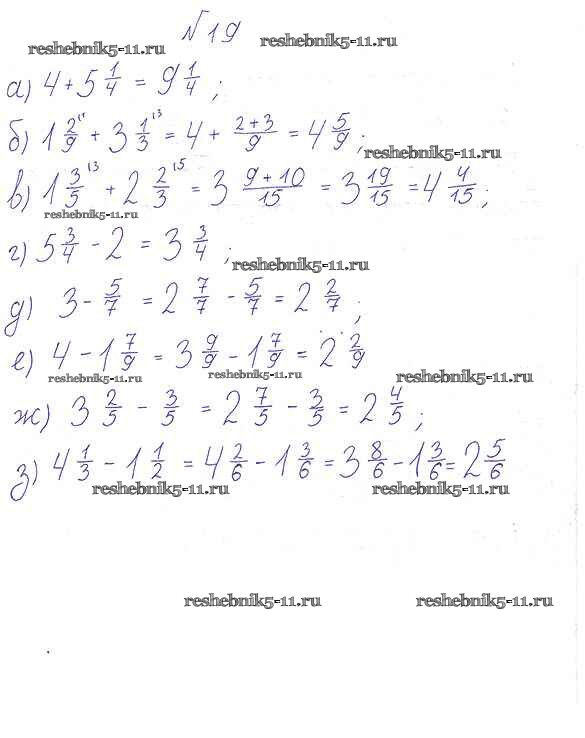 №19
reshebnik5-11.ru reshebnik5-11.ru
а) 4 + 5 1/4 = 9 1/4 ;
б) 1 2/9 + 3 1/3 = 4 + (2+3)/9 = 4 5/9 ;
reshebnik5-11.ru
в) 1 3/5 + 2 2/3 = 3 (9+10)/15 = 3 19/15 = 4 4/15 ;
reshebnik5-11.ru
г) 5 3/4 - 2 = 3 3/4 ;
reshebnik5-11.ru
д) 3 - 5/7 = 2 7/7 - 5/7 = 2 2/7 ;
е) 4 - 1 7/9 = 3 9/9 - 1 7/9 = 2 2/9
reshebnik5-11.ru reshebnik5-11.ru reshebnik5-11.ru
ж) 3 2/5 - 3/5 = 2 7/5 - 3/5 = 2 4/5 ;
з) 4 1/3 - 1 1/2 = 4 2/6 - 1 3/6 = 3 8/6 - 1 3/6 = 2 5/6
reshebnik5-11.ru reshebnik5-11.ru
reshebnik5-11.ru reshebnik5-11.ru